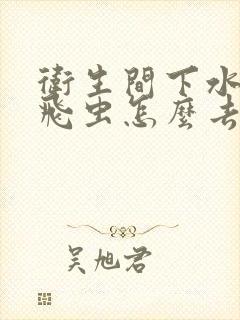 衛生間下水
飛虫怎麼去
吴旭君